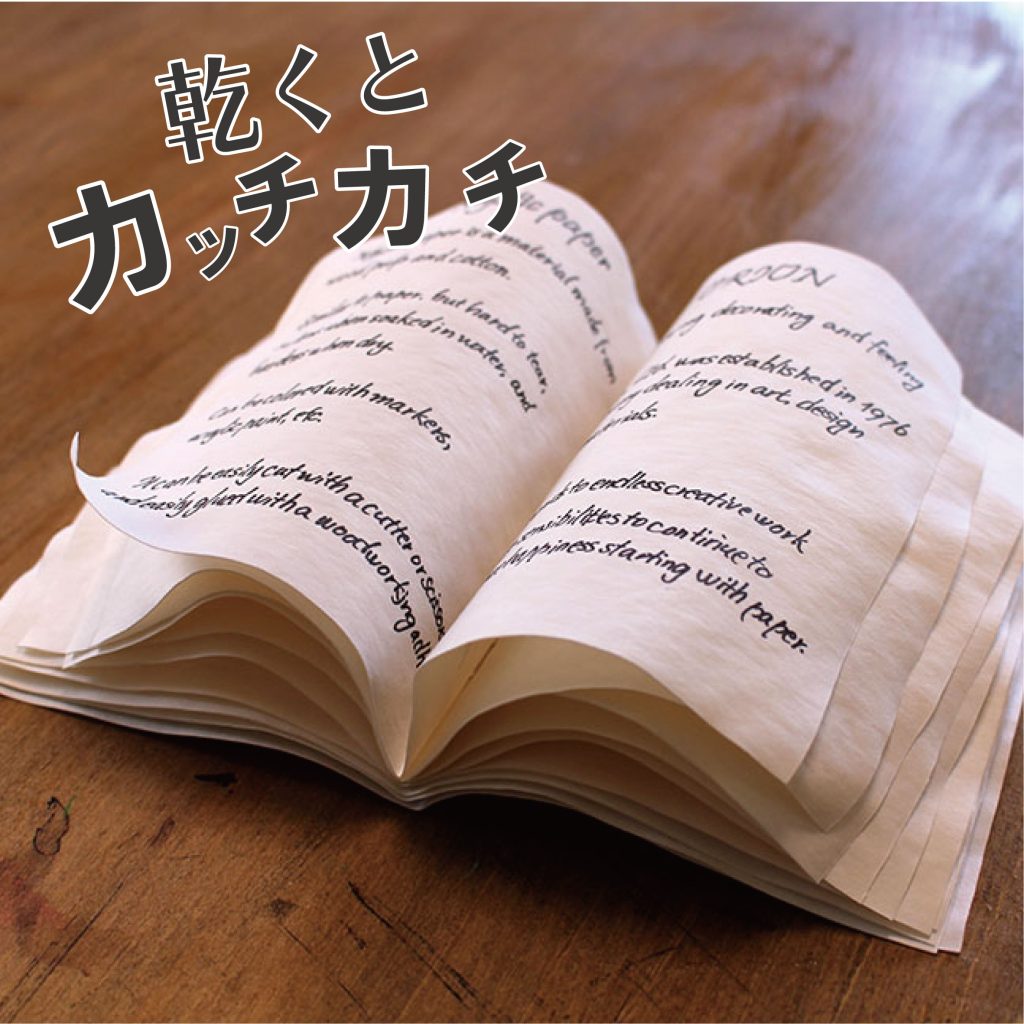 乾くと
カッチカチ
ic paper
per is a material made from
wood pulp and cotton.
paper, but hard to tear,
when soaked in water, and
hardens when dry.
Can be colored with markers,
acrylic paint, etc.
It can be easily cut with a cutter or scissor
and easily glued with a woodworking adh
ORION
decorating and feeling
was established in 1976
dealing in art, design
materials.
to endless creative work
sensibilities to continue to
happiness starting with paper.